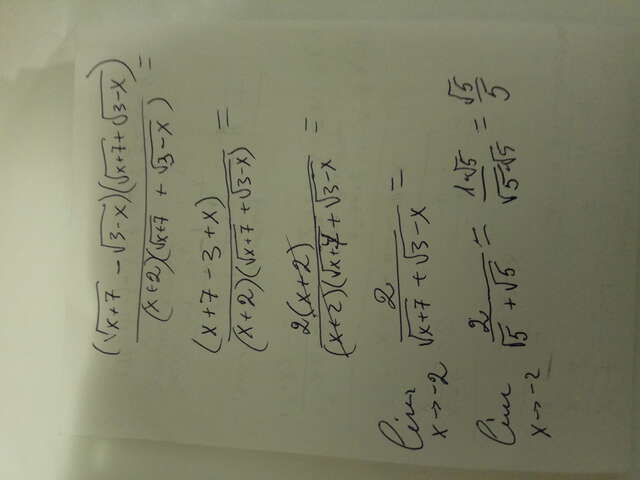 (√x+7 - √3-x)(√x+7 + √3-x) / (x+2)(√x+7 + √3-x) =
(x+7-3+x) / (x+2)(√x+7 + √3-x) =
2(x+2) / (x+2)(√x+7 + √3-x =
lim x→-2 2 / √x+7 + √3-x =
lim x→-2 2 / √5 + √5 = 1·√5 / √5·√5 = √5 / 5